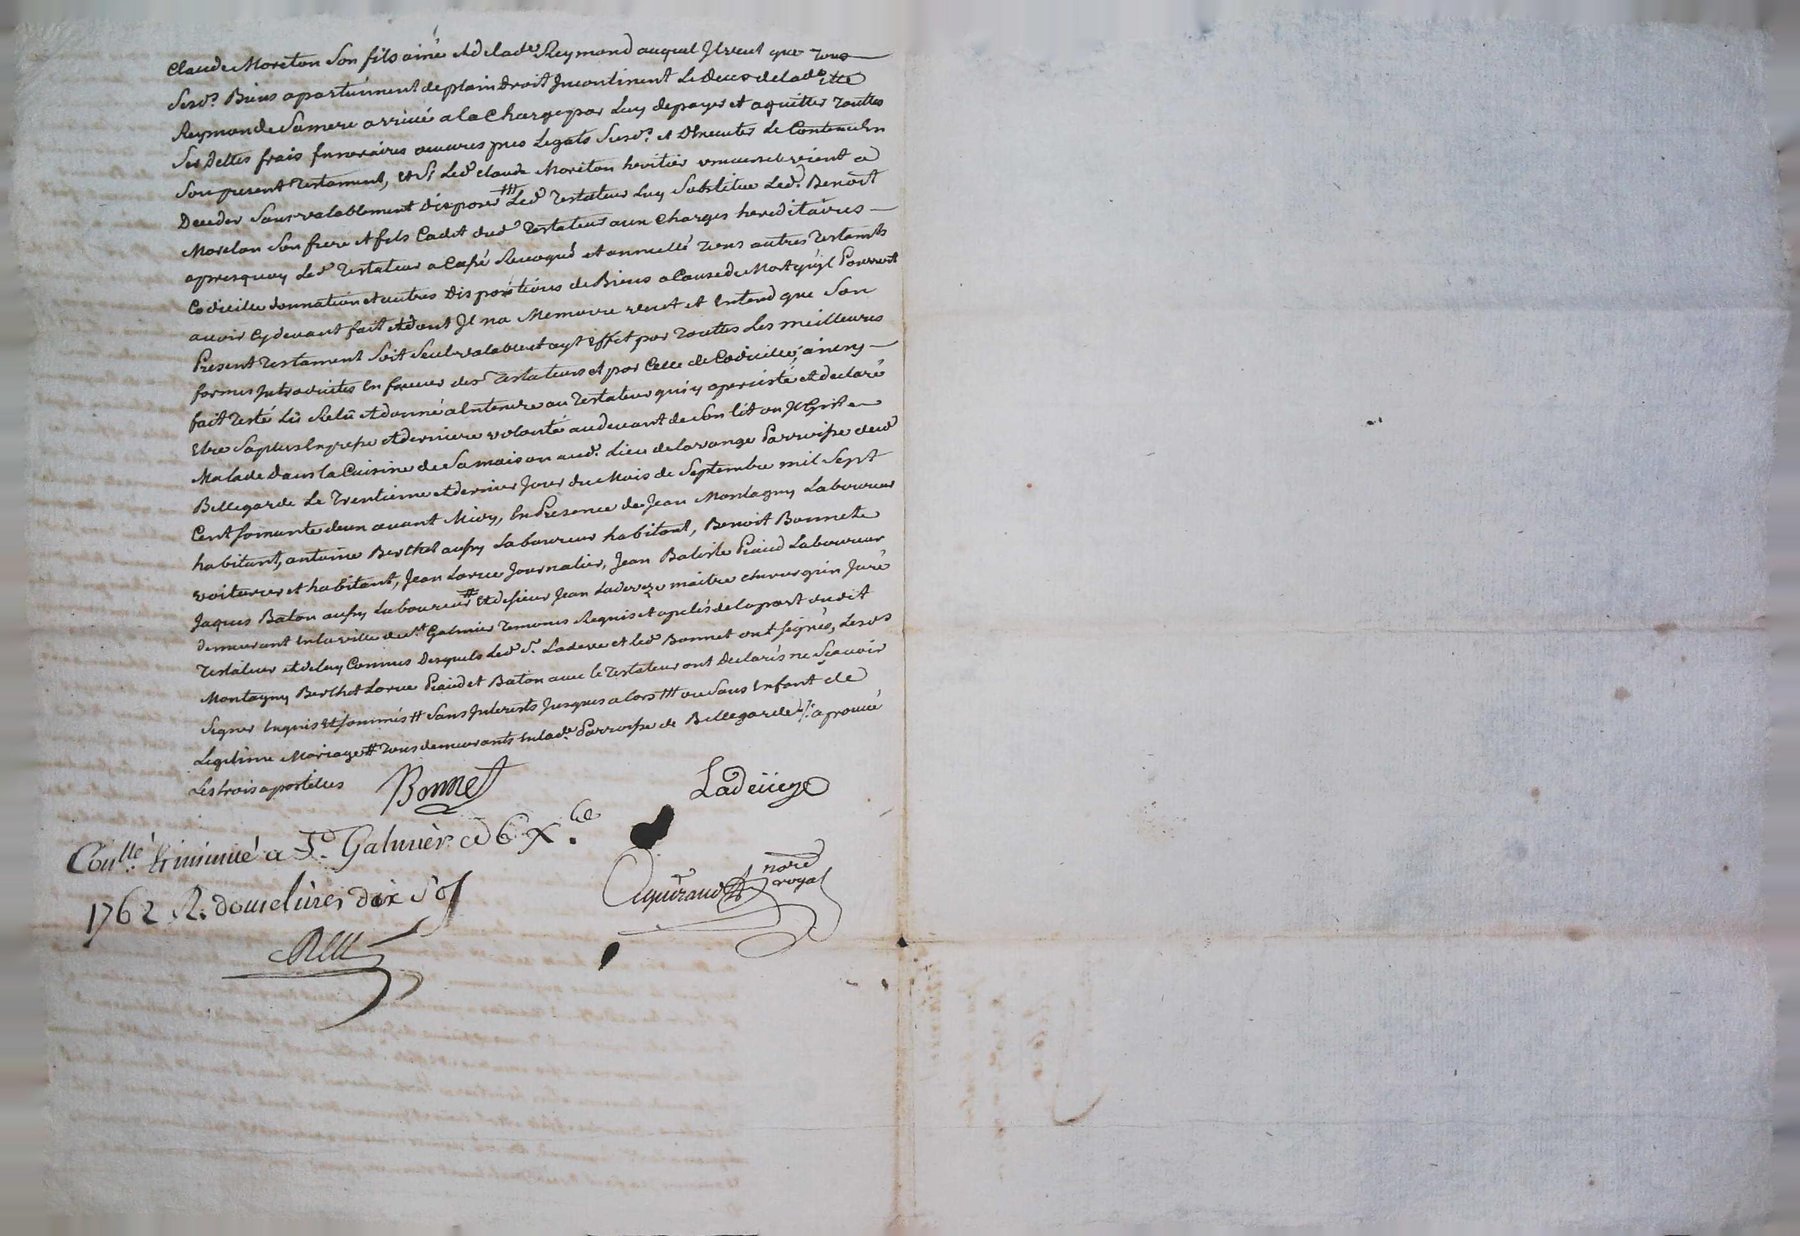 Claude Moreton Son fils ainé et de lade Reymond auquel Il veut que tous
Sesd. Biens apartiennent de plain droit Incontinent Le Deces de lade
Reymonde Sa mere arrivé a la Charge par Luy de payer et aquitter touttes
Ses Dettes frais funeraires œuvres pies Legats Susd. et d'Executer Le Contenu En
Son present testament, et Si Led Claude Moreton heritier venoit a
Deceder Sans valablement disposer ttt Led testateur Luy Substitue Led. Benoit
Morelon Son frere et fils Cadet dud testateur aux Charges hereditaires
apresquoy Led testateur a Cassé Revoqué et annullé tous autres testamts
Codicille donnation et autres Dispositions de Biens a Cause de Mort qu'jl Pourroit
avoir Cy devant fait et dont Jl na Memoire veut et Entend que Son
Present testament Soit Seul valable et ayt Effet par touttes Les meilleures
formes Introduites En faveur des testateurs et par Celle de Codicille, ainsy
fait testé Lû Relû et donné a Entendre au testateur qui y a percisté et declaré
Etre Sa plus Expresse et derniere volonté au devant de Son Lit ou Jl Git
Malade dans la Cuisine de Sa maison aud. Lieu de la range Parroisse dud
Bellegarde Le trentieme et dernier Jour du Mois de Septembre mil Sept
Cent Soixante deux avant Midy, En Presence de Jean Montagny Laboureur
habitant, antoine Berthet aussy Laboureur habitant, Benoit Bonnet
voiturier et habitant, Jean Larue Journalier, Jean Batiste Piaud Laboureur
Jaques Baton aussy Laboureur # et de Sieur Jean Ladeveze maitre chirurgien Juré
demeurant En la ville de St Galmier temoins Requis et apelés de la part dudit
testateur et de luy Connus Desquels Led Sr. Ladeveze et Led Bonnet ont Signés, Lesds
Montagny Berthet Larue Piaud et Baton avec le testateur ont declarés ne Sçavoir
Signer Enquis et Sommés # Sans Interests Jusques a lors ttt ou Sans Enfant de
Legitime Mariage # tous demeurants En lade Parroisse de Bellegarde aprouvé
Les trois apostilles
Bonnet Ladeveze
Conllé Et insinué a St. Galmier ce 6 Xbre
1762 R. douze livres dix Sols
nore
royal